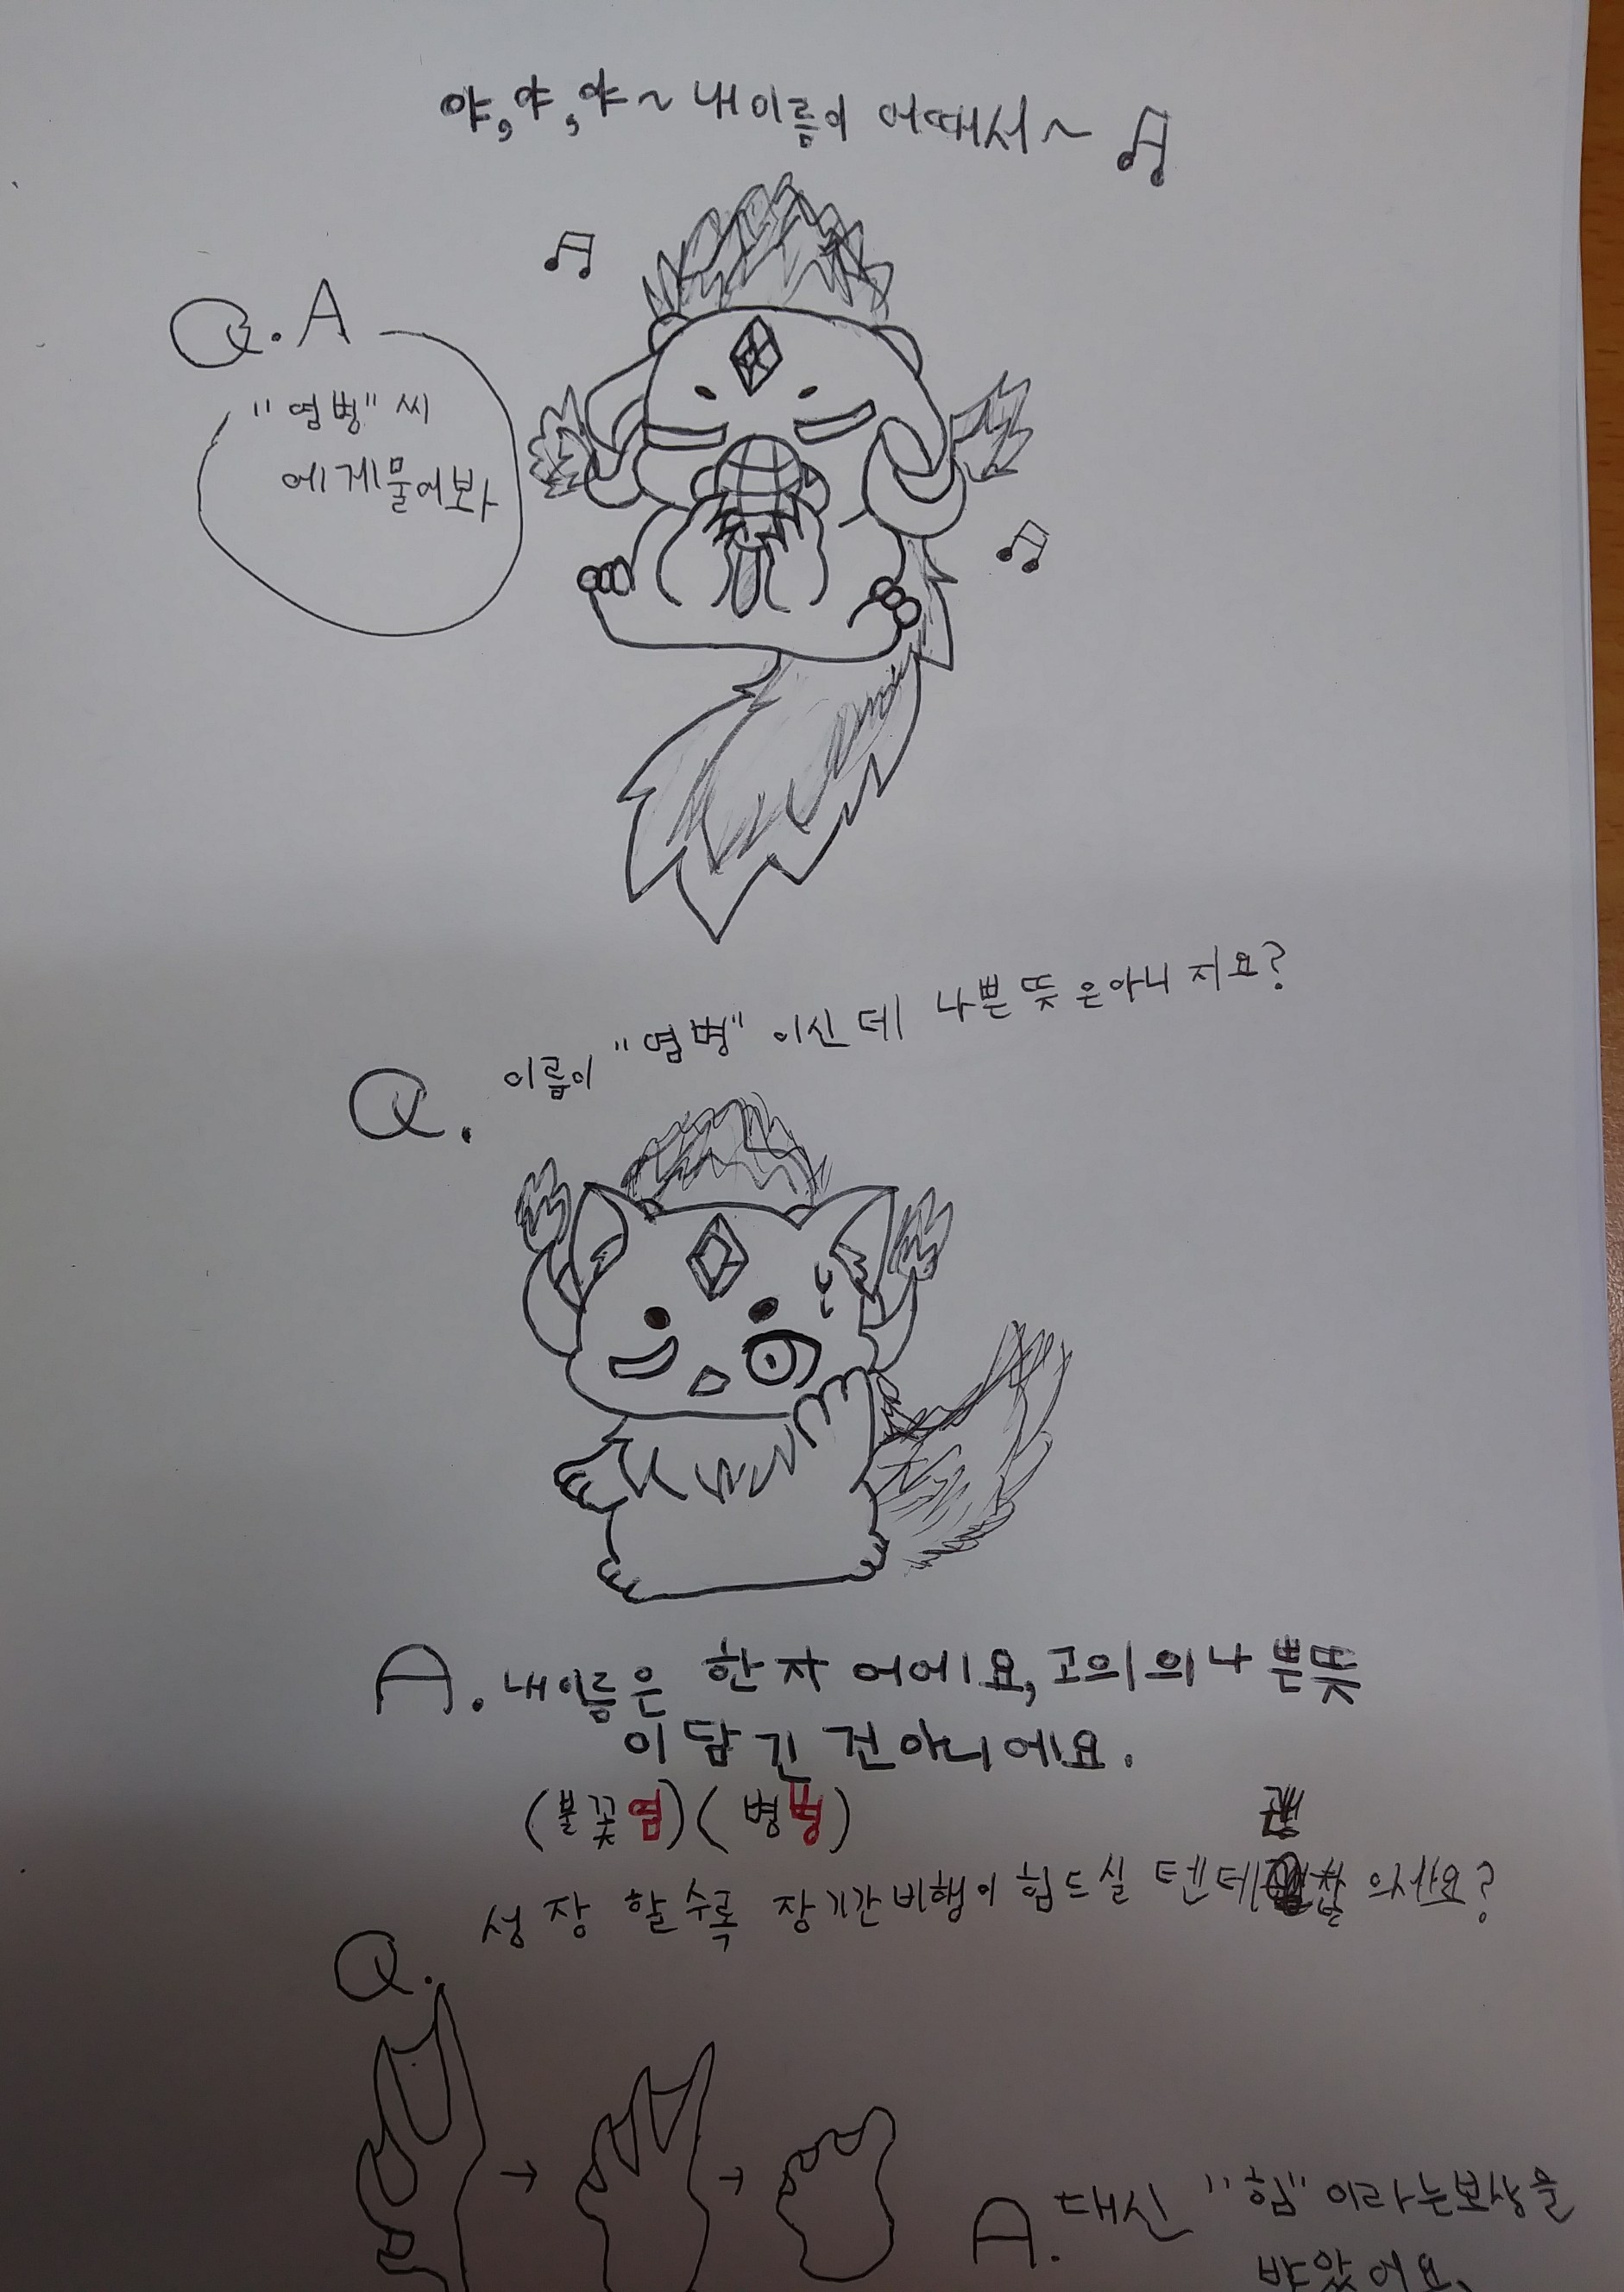 야, 야, 야~ 내 이름이 어때서~
Q.A
"염병" 씨
에게 물어봐
Q. 이름이 "염병" 이신데 나쁜 뜻은 아니지요?
A. 내 이름은 한자어에요, 고의의 나쁜 뜻
이 담긴 건 아니에요.
(불꽃염)(병병)
Q. 성장 할수록 장기간 비행이 힘드실 텐데 괜찮으세요?
A. 대신 "힘"이라는 보상을
받았어요.